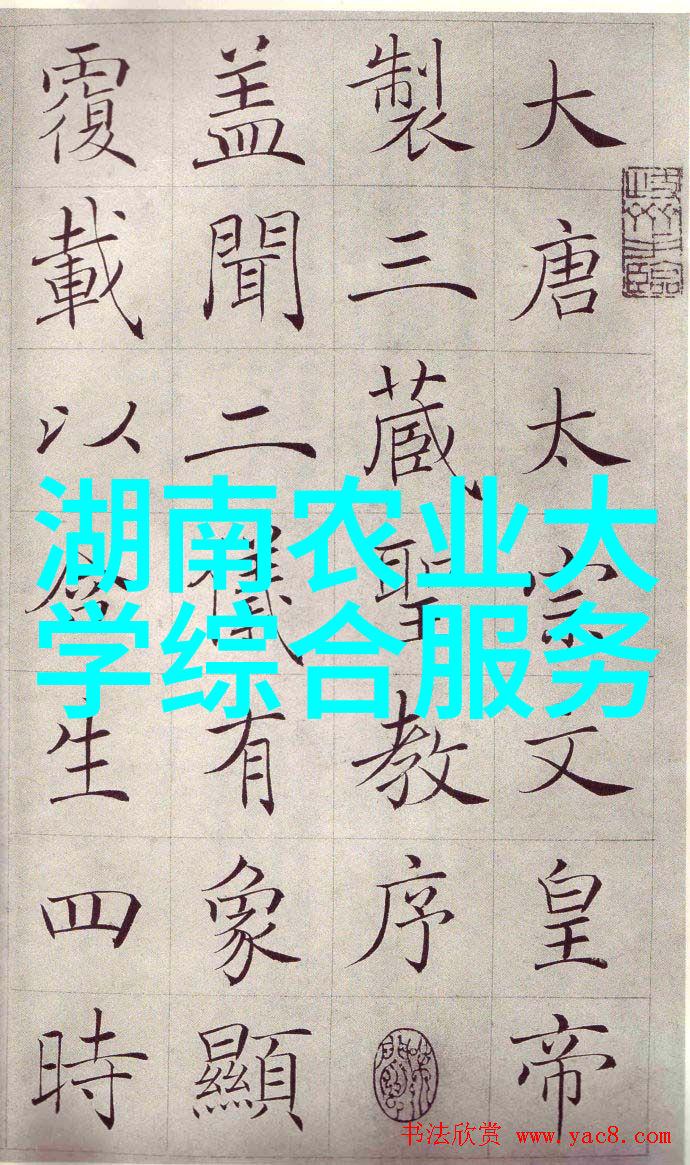 大唐太宗文皇帝
製三藏聖教序
盖聞二儀有象顯
覆載以含生四時
湖南农业大
学综合服务
书法欣赏 www.yac8.com